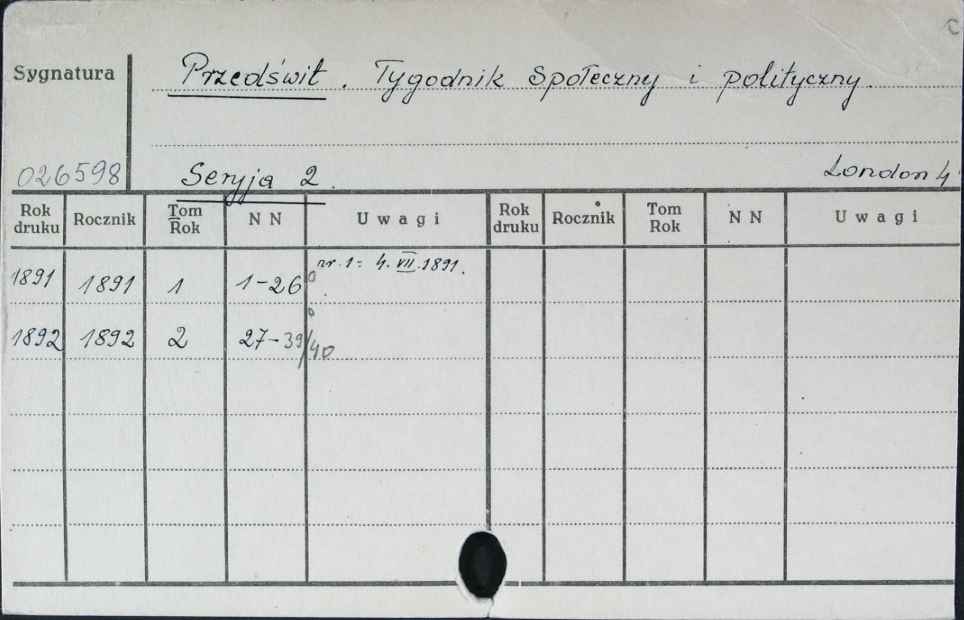 C
Sygnatura
Przedświt. Tygodnik Społeczny i polityczny.
026598
Seryja 2.
London 4°
Rok druku Rocznik Tom Rok N N Uwagi Rok druku Rocznik Tom Rok N N Uwagi
nr. 1: 4. VII. 1891.
1891 1891 1 1-26
1892 1892 2 27-39/40